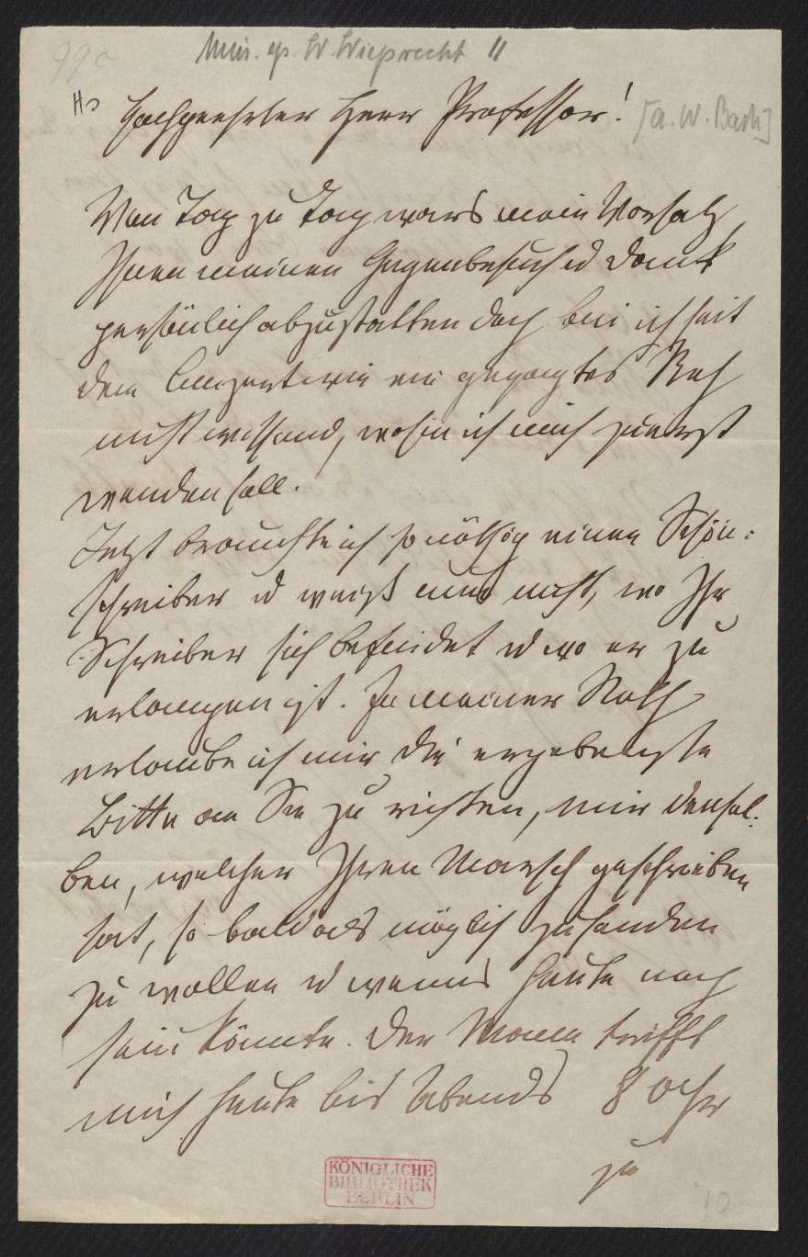 Mus. ep. W. Wieprecht 11
Hochgeehrter Herr Professor!
[A. W. Bach]
Von Tag zu Tag wars mein Vorsatz
Ihnen meinen Gegenbesuch u Dank
persönlich abzustatten doch bin ich seit
dem Conzert wie ein gejagtes Reh
nicht wissend, wohin ich mich zuerst
wenden soll.
Jetzt brauchte ich so nöthig einen Schön-
schreiber u weiß nun nicht, wo Ihr
Schreiber sich befindet u wo er zu
erlangen ist. In meiner Noth
erlaube ich mir die ergebenste
Bitte an Sie zu richten, mir densel-
ben, welcher Ihren Marsch geschrieben
hat, so bald als möglich zusenden
zu wollen u wenns heute noch
sein könnte. Der Mann trifft
mich heute bis Abends 8 Uhr
zu
KÖNIGLICHE
BIBLIOTHEK
BERLIN
10